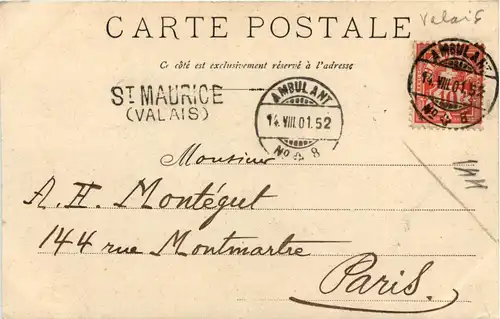 Valais
CARTE POSTALE
Ce côté est exclusivement réservé à l'adresse
ST MAURICE
(VALAIS)
AMBULANT
14. VIII. 01. 52
No 8
AMBULANT
14. VIII. 01. 52
No 8
Monsieur
A. H. Montégut
144 rue Montmartre
Paris.